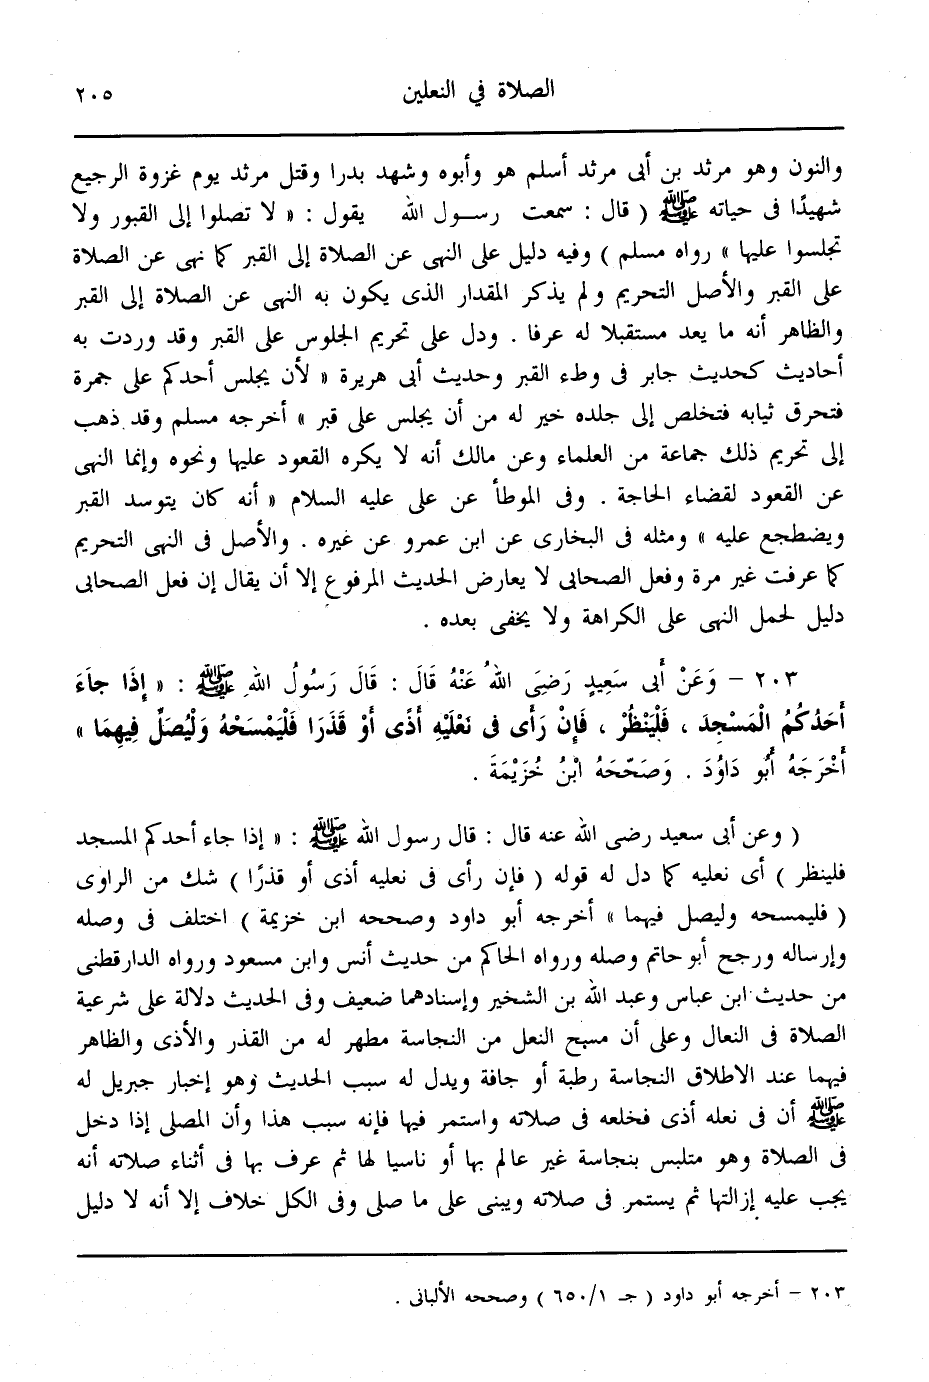 الصلاة في النعلين
٢٠٥
والنون وهو مرثد بن أبى مرثد أسلم هو وأبوه وشهد بدرا وقتل مرثد يوم غزوة الرجيع
شهيدًا فى حياته ﷺ ( قال : سمعت رسول الله يقول : « لا تصلوا إلى القبور ولا
تجلسوا عليها » رواه مسلم ) وفيه دليل على النهى عن الصلاة إلى القبر كما نهى عن الصلاة
على القبر والأصل التحريم ولم يذكر المقدار الذى يكون به النهى عن الصلاة إلى القبر
والظاهر أنه ما يعد مستقبلا له عرفا . ودل على تحريم الجلوس على القبر وقد وردت به
أحاديث كحديث جابر فى وطء القبر وحديث أبى هريرة « لأن يجلس أحدكم على جمرة
فتحرق ثيابه فتخلص إلى جلده خير له من أن يجلس على قبر » أخرجه مسلم وقد ذهب
إلى تحريم ذلك جماعة من العلماء وعن مالك أنه لا يكره القعود عليها ونحوه وإنما النهى
عن القعود لقضاء الحاجة . وفى الموطأ عن على عليه السلام « أنه كان يتوسد القبر
ويضطجع عليه » ومثله فى البخارى عن ابن عمرو عن غيره . والأصل فى النهى التحريم
كما عرفت غير مرة وفعل الصحابى لا يعارض الحديث المرفوع إلا أن يقال إن فعل الصحابى
دليل لحمل النهى على الكراهة ولا يخفى بعده .
٢٠٣ – وَعَنْ أَبى سَعِيدٍ رَضِىَ اللهُ عَنْهُ قَالَ : قَالَ رَسُولُ اللهِ ﷺ : « إِذَا جاءَ
أَحَدُكُمُ الْمَسْجِدَ ، فَلْيَنْظُرْ ، فَإِنْ رَأى فى نَعْلَيْهِ أَذًى أَوْ قَذَرَا فَلْيَمْسَحْهُ وَلْيُصَلِّ فِيهِمَا »
أَخْرَجَهُ أَبُو دَاوُدَ . وَصَحّحَهُ ابْنُ خُزَيْمَةَ .
( وعن أبى سعيد رضى الله عنه قال : قال رسول الله ﷺ : « إذا جاء أحدكم المسجد
فلينظر ) أى نعليه كما دل له قوله ( فإن رأى فى نعليه أذى أو قذرًا ) شك من الراوى
( فليمسحه وليصل فيهما » أخرجه أبو داود وصححه ابن خزيمة ) اختلف فى وصله
وإرساله ورجح أبو حاتم وصله ورواه الحاكم من حديث أنس وابن مسعود ورواه الدارقطنى
من حديث ابن عباس وعبد الله بن الشخير وإسنادهما ضعيف وفى الحديث دلالة على شرعية
الصلاة فى النعال وعلى أن مسح النعل من النجاسة مطهر له من القذر والأذى والظاهر
فيهما عند الاطلاق النجاسة رطبة أو جافة ويدل له سبب الحديث وهو إخبار جبريل له
ﷺ أن فى نعله أذى فخلعه فى صلاته واستمر فيها فإنه سبب هذا وأن المصلى إذا دخل
فى الصلاة وهو متلبس بنجاسة غير عالم بها أو ناسيا لها ثم عرف بها فى أثناء صلاته أنه
يجب عليه إزالتها ثم يستمر فى صلاته ويبنى على ما صلى وفى الكل خلاف إلا أنه لا دليل
٢٠٣ – أخرجه أبو داود ( جـ ٦٥٠/١ ) وصححه الألبانى .